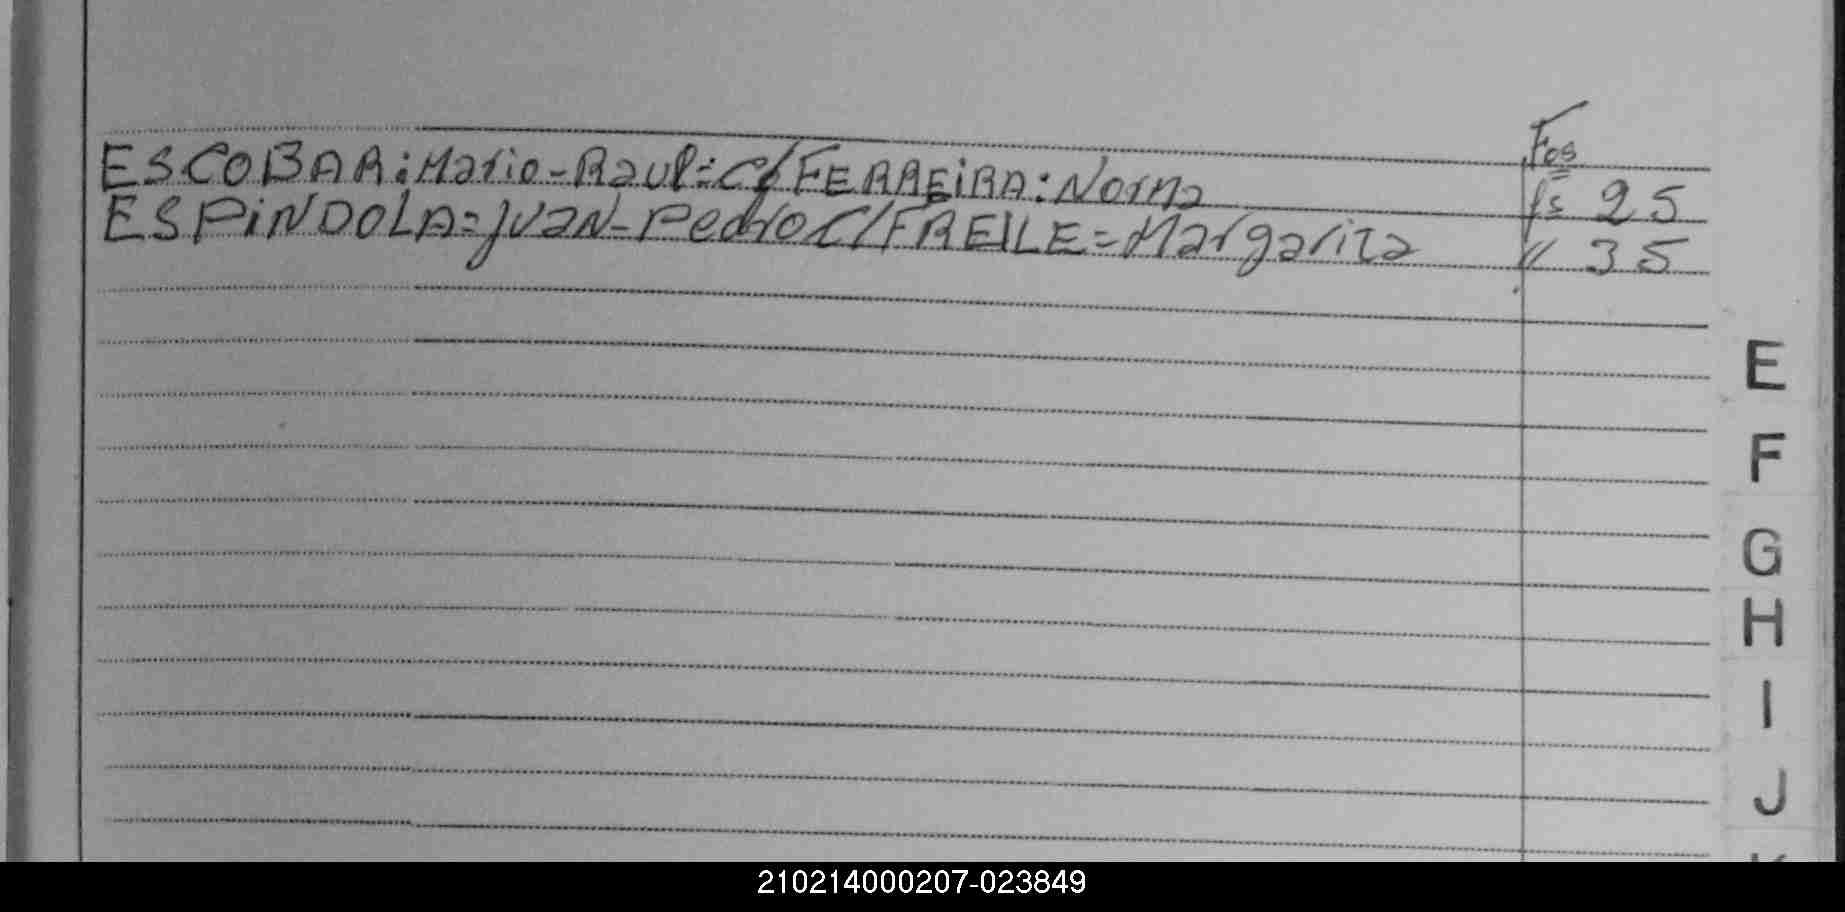 Fos
ESCOBAR: Mario-Raul=C/FERREIRA: Norma fs 25
ESPINDOLA=juan-Pedro C/FREILE=Margarita " 35
E
F
G
H
I
J
210214000207-023849